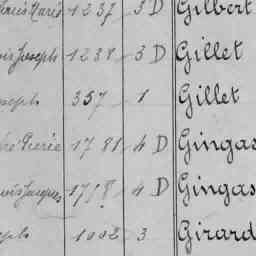 Marie 1237 3 D Gilbert
Joseph 1238 3 D Gillet
357 1 Gillet
Pierre 1781 4 D Gingas
Jacques 1718 4 D Gingas
1002 3 Girard